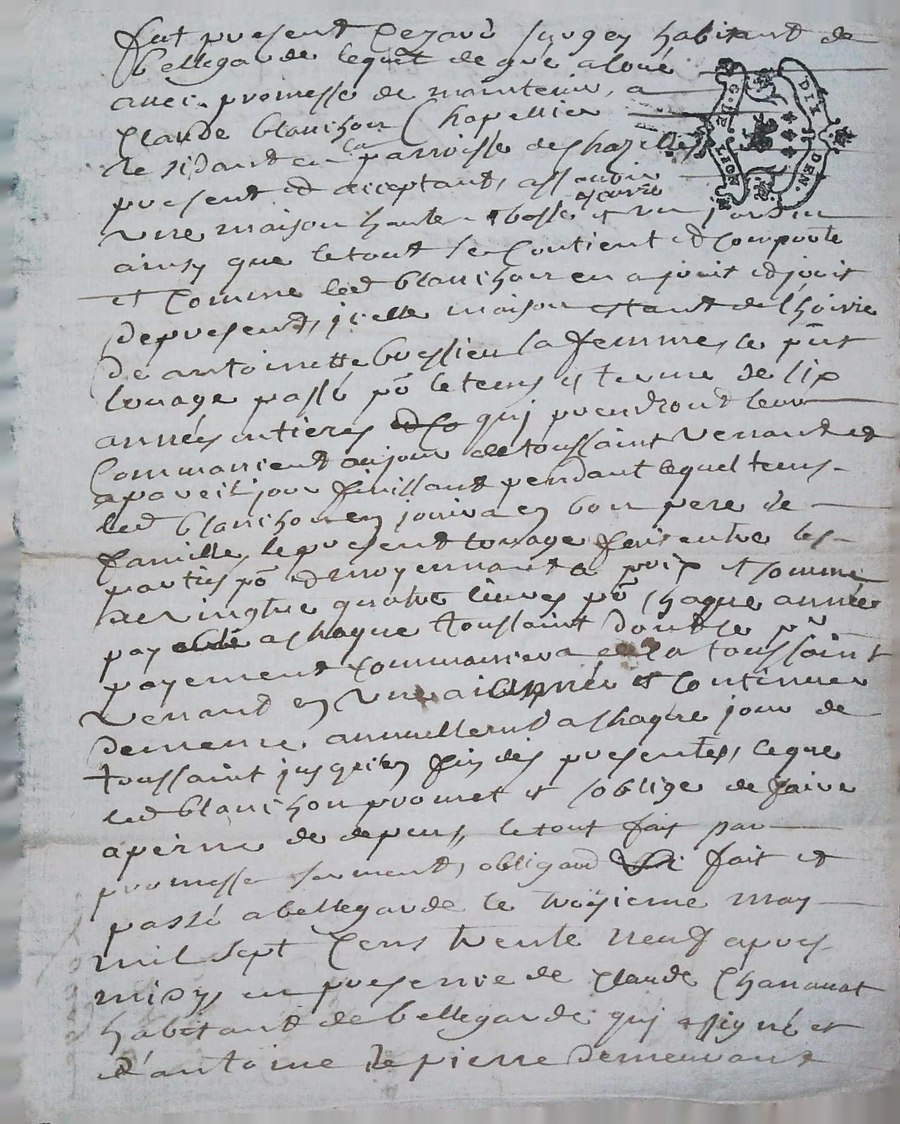 fut present Cezard Jugey habitant de
bellegarde lequel de gré a loué
avec promesse de maintenir, a
Claude blanchon Chapellier
residant en la parroisse de chazelles
G.DE LION
DIX DEN.
present et acceptant, assavoir
une maison haulte basse et un jardin
ainsy que le tout se Contient et Comporte
et Comme led blanchon en a jouit et jouit
de present, icelle maison estant de l'hoirie
de antoinette bussieu sa femme, le pnt
louage passé po le tems et terme de six
années entieres qui prendront leur
Commancement au jour de toussaint venant et
a pareil jour finissant pendant lequel tems
led blanchon en jouira en bon pere de
famille, le present louage fais entre les
parties po et moyennant le prix et somme
de vingte quatre livres po chaque année
payable a chaque toussaint dont le pr
payement Commancera a la toussaint
venant en une année et Continuer
de meme annuellement a chaque jour de
toussaint jusqu'en fin des presentes, ce que
led blanchon promet et s'oblige de faire
a peine de depens, le tout fait par
promesse serment, obligaon fait et
passé a bellegarde le troisieme may
mil sept Cens trente neuf apres
midy, en presence de Claude Chanavat
habitant de bellegarde qui a signé et
d'antoine depierre demeurant